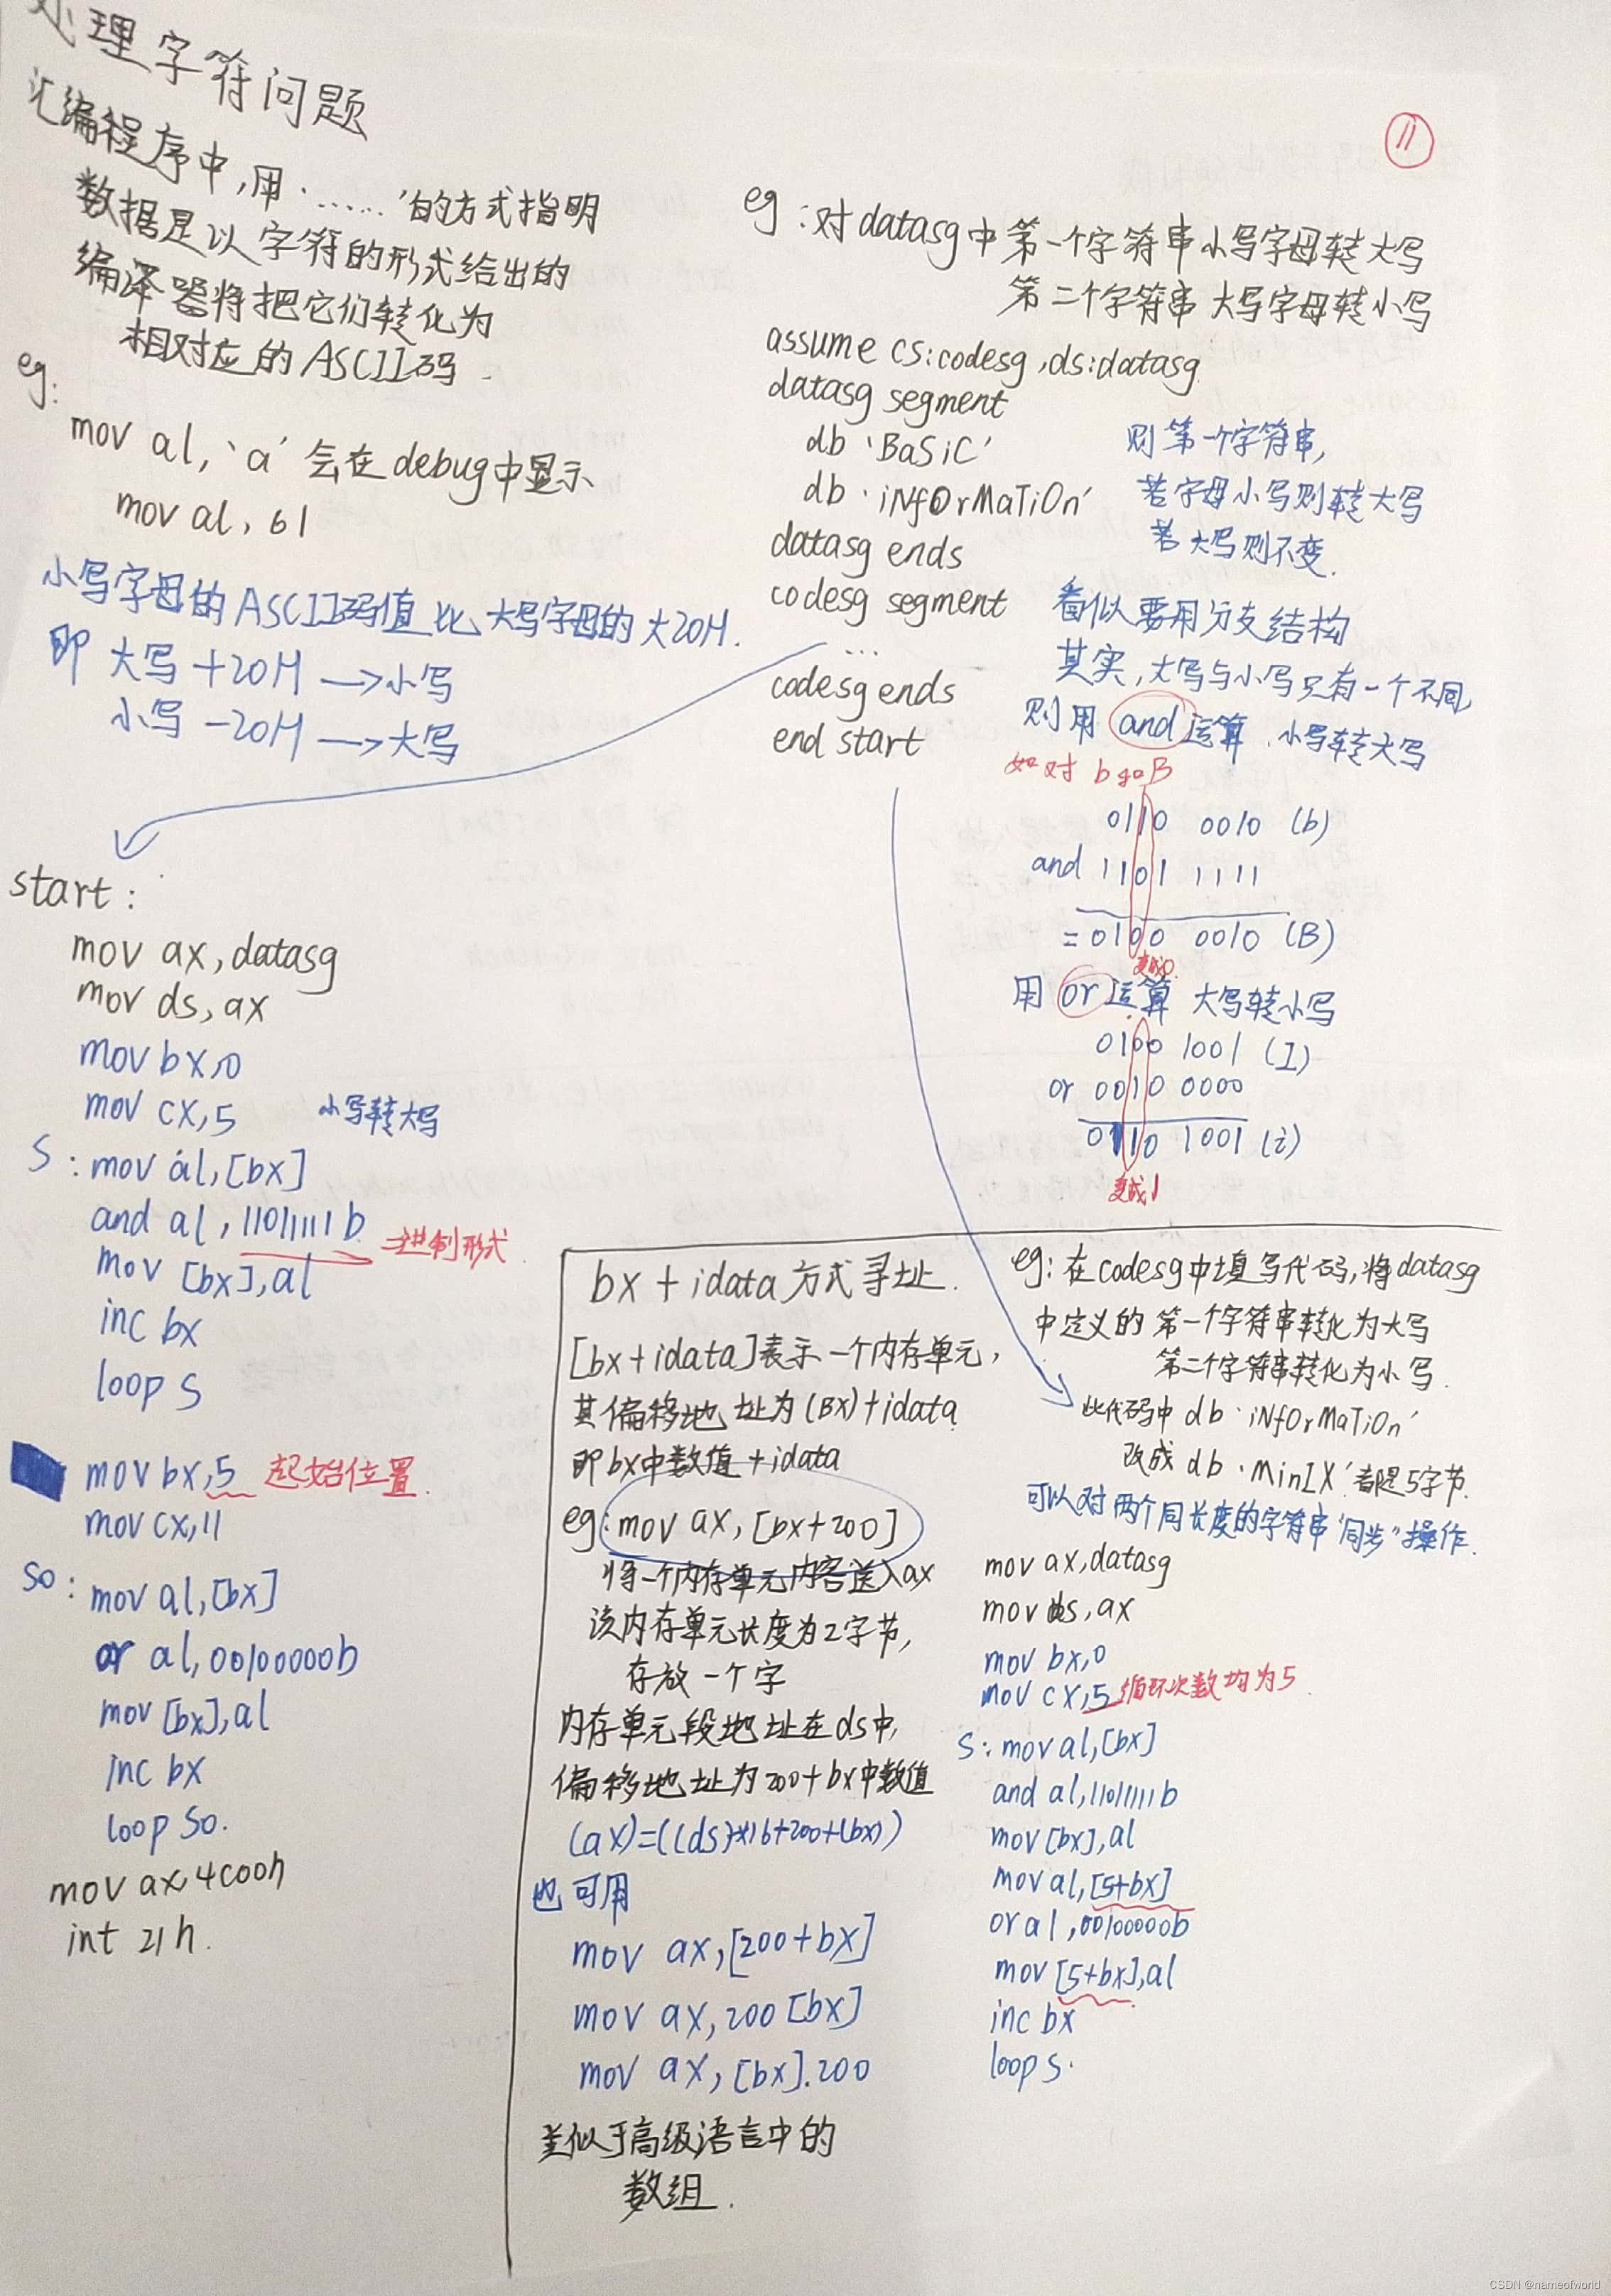 处理字符问题
汇编程序中,用'……'的方式指明
数据是以字符的形式给出的
编译器将把它们转化为
相对应的ASCII码.
eg:
mov al,'a'会在debug中显示
mov al,61
小写字母的ASCII码值比大写字母的大20H.
即 大写+20H→小写
小写-20H→大写
start:
mov ax,datasg
mov ds,ax
mov bx,0
mov cx,5 小写转大写
S:mov al,[bx]
and al,11011111b 二进制形式
mov [bx],al
inc bx
loop s
mov bx,5 起始位置.
mov cx,11
so:mov al,[bx]
or al,00100000b
mov [bx],al
inc bx
loop so.
mov ax,4c00h
int 21h.
11
eg:对datasg中第一个字符串小写字母转大写
第二个字符串大写字母转小写
assume cs:codesg,ds:datasg
datasg segment
db 'BaSiC'
db 'iNfOrMaTiOn'
datasg ends
codesg segment
...
codesg ends
end start
则第一个字符串,
若字母小写则转大写
若大写则不变.
看似要用分支结构
其实,大写与小写只有一个不同,
则用and运算.小写转大写
如对b和B
0110 0010 (b)
and 1101 1111
=0100 0010 (B)
变成0
用or运算 大写转小写
0100 1001 (I)
or 0010 0000
0110 1001 (i)
变成1
bx+idata方式寻址.
[bx+idata]表示一个内存单元,
其偏移地址为(BX)+idata
即bx中数值+idata
eg:mov ax,[bx+200]
将一个内存单元内容送入ax
该内存单元长度为2字节,
存放一个字
内存单元段地址在ds中,
偏移地址为200+bx中数值
(ax)=((ds)*16+200+(bx))
也可用
mov ax,[200+bx]
mov ax,200[bx]
mov ax,[bx].200
类似于高级语言中的
数组.
eg:在codesg中填写代码,将datasg
中定义的第一个字符串转化为大写
第二个字符串转化为小写.
此代码中 db 'iNfOrMaTiOn'
改成 db 'MinIX'都是5字节.
可以对两个同长度的字符串"同步"操作.
mov ax,datasg
mov ds,ax
mov bx,0
mov cx,5 循环次数均为5
S:mov al,[bx]
and al,11011111b
mov [bx],al
mov al,[5+bx]
or al,00100000b
mov [5+bx],al
inc bx
loop s.
CSDN @nameofworld